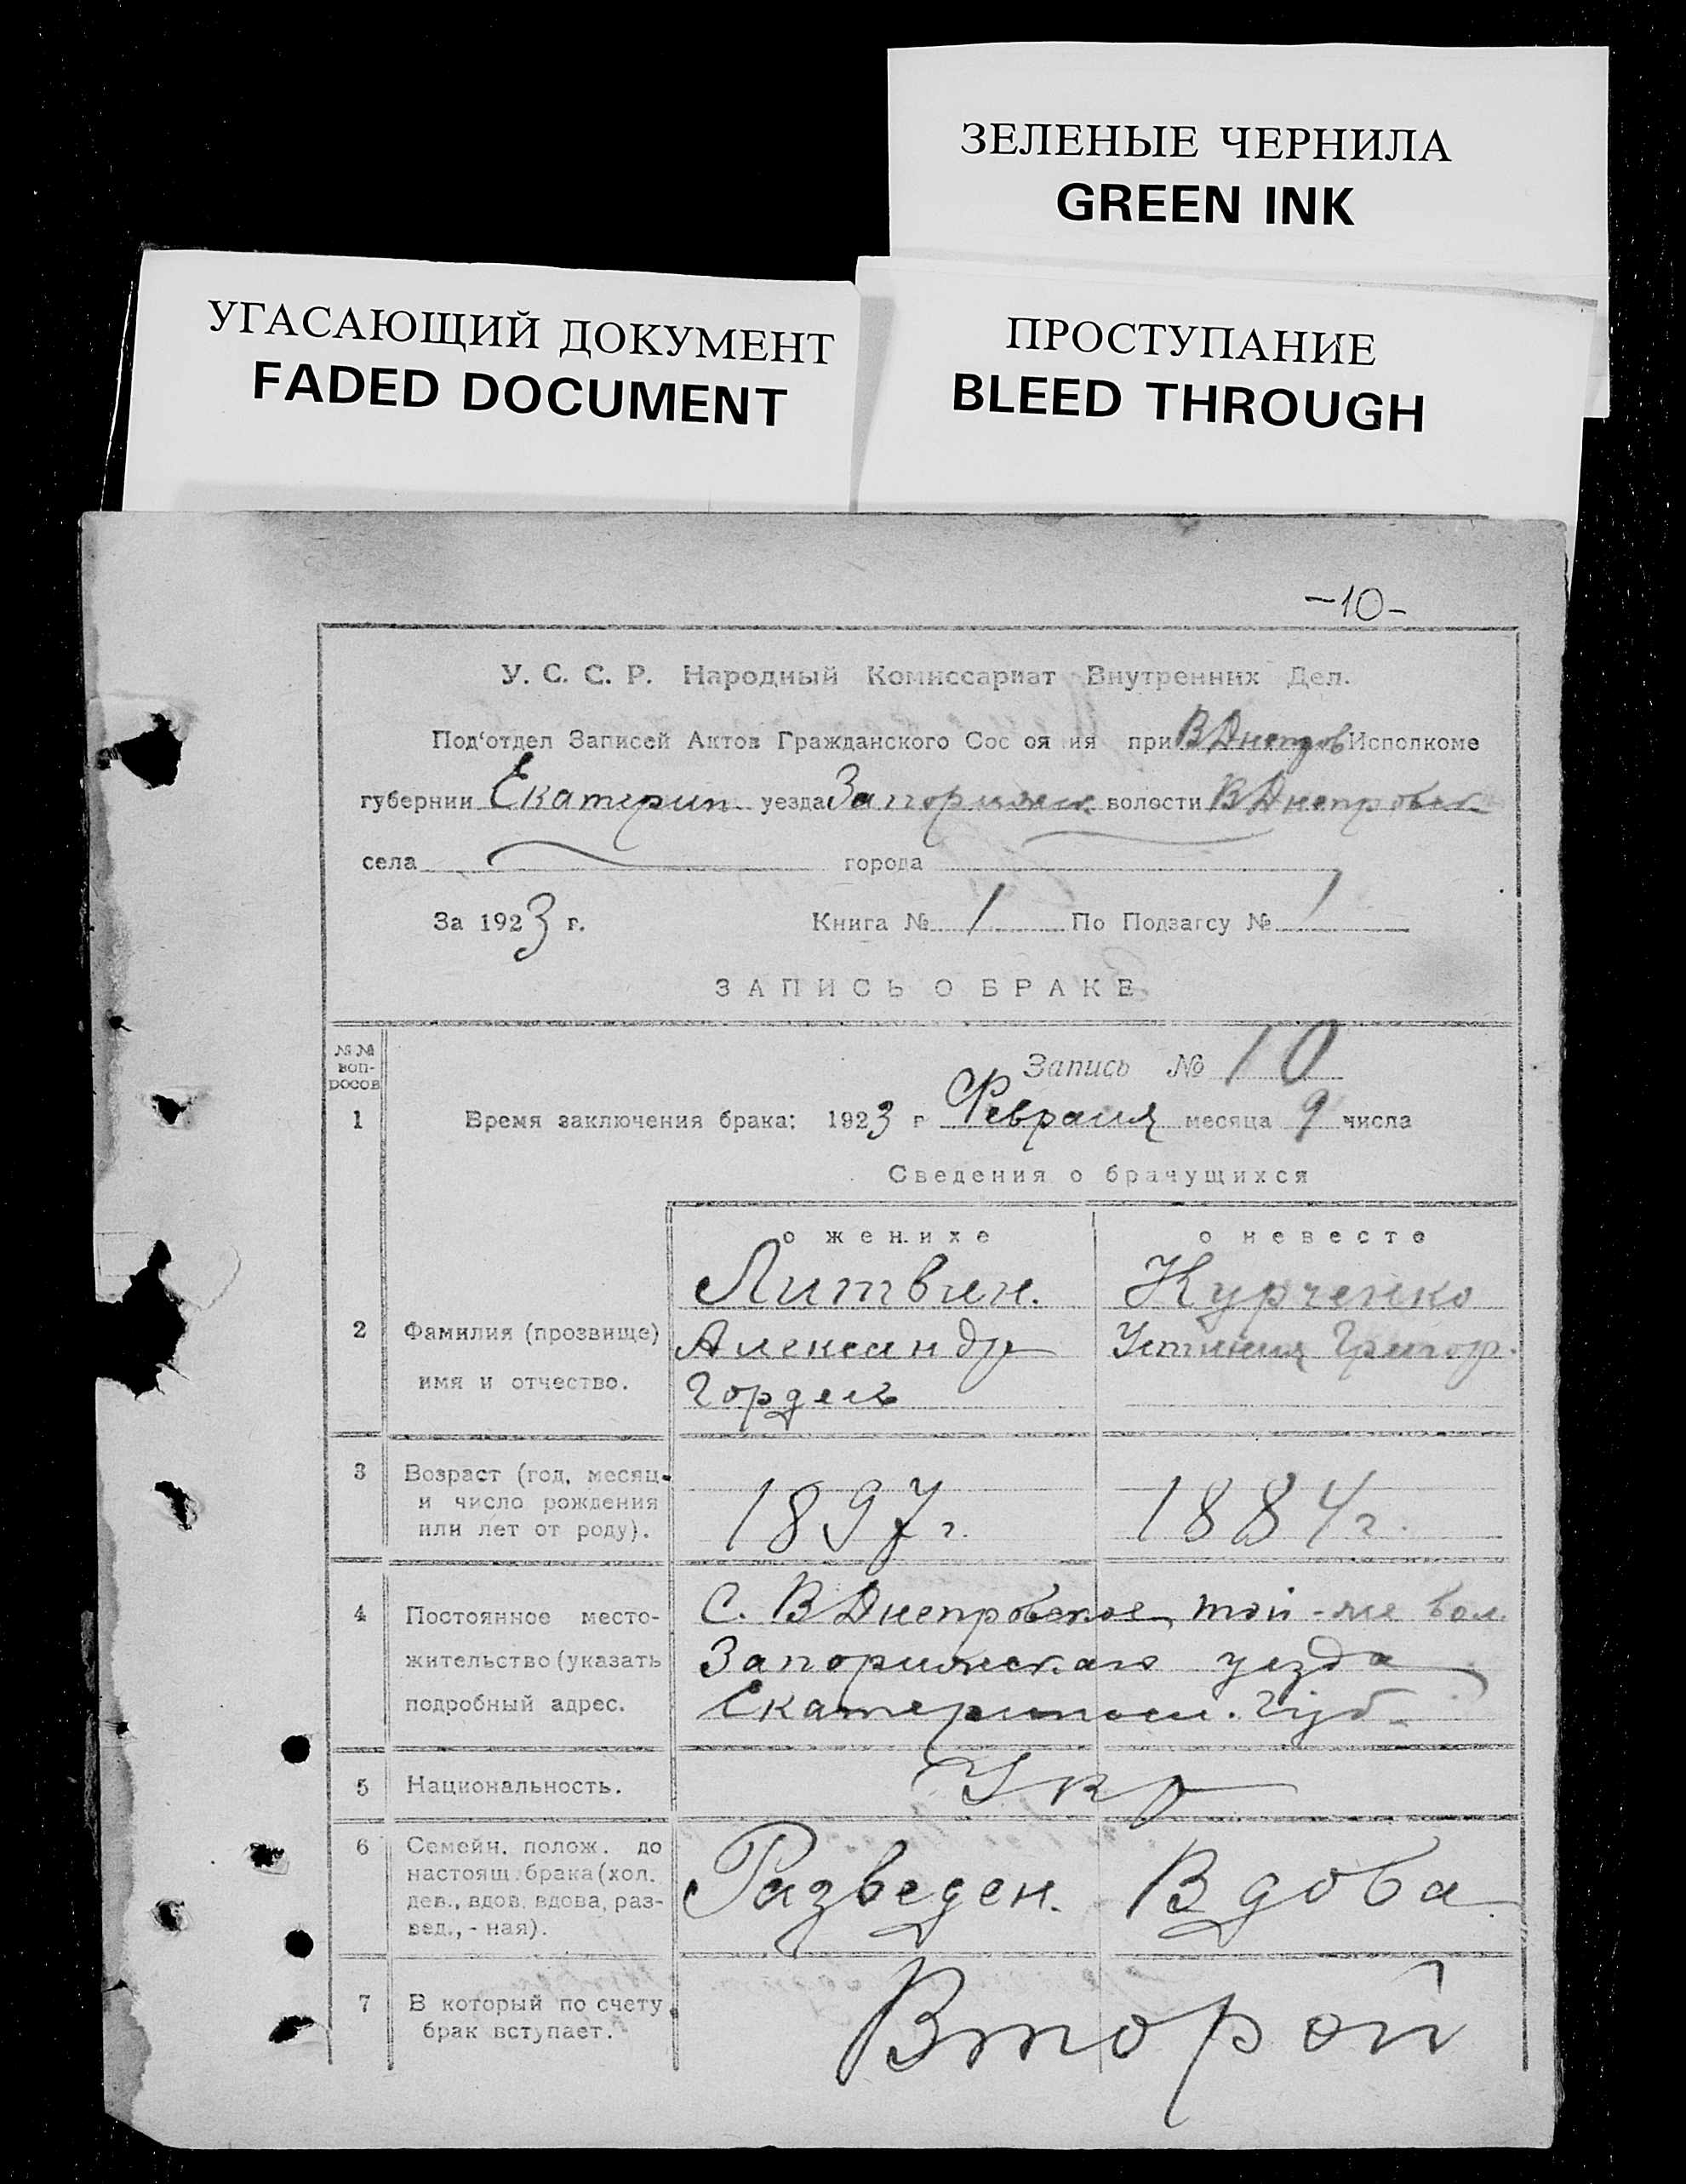 ЗЕЛЕНЫЕ ЧЕРНИЛА
GREEN INK
УГАСАЮЩИЙ ДОКУМЕНТ
FADED DOCUMENT
ПРОСТУПАНИЕ
BLEED THROUGH
-10-
У. С. С. Р. Народный Комиссариат Внутренних Дел.
Под'отдел Записей Актов Гражданского Сос оя ия при ВДнепров Исполкоме
губернии Екатерин. уезда Запорижск. волости ВДнепровск
села города
За 1923 г. Книга № 1 По Подзагсу № 1
ЗАПИСЬ О БРАКЕ
№ № воп-
росов
Запись № 10
1 Время заключения брака: 1923 г Февраля месяца 9 числа
Сведения о брачущихся
о женихе о невесте
Литвин. Курченко
2 Фамилия (прозвище) Александр Устиния Григор.
имя и отчество. Гордеев
3 Возраст (год, месяц
и число рождения 1897 г. 1884 г.
или лет от роду).
4 Постоянное место- С. ВДнепровское, той-же вол.
жительство (указать Запорижского уезда
подробный адрес. Екатеринос. Губ.
5 Национальность. Укр
6 Семейн. полож. до
настоящ. брака (хол. Разведен. Вдова
дев., вдов, вдова, раз-
вед., - ная).
7 В который по счету Второй
брак вступает.